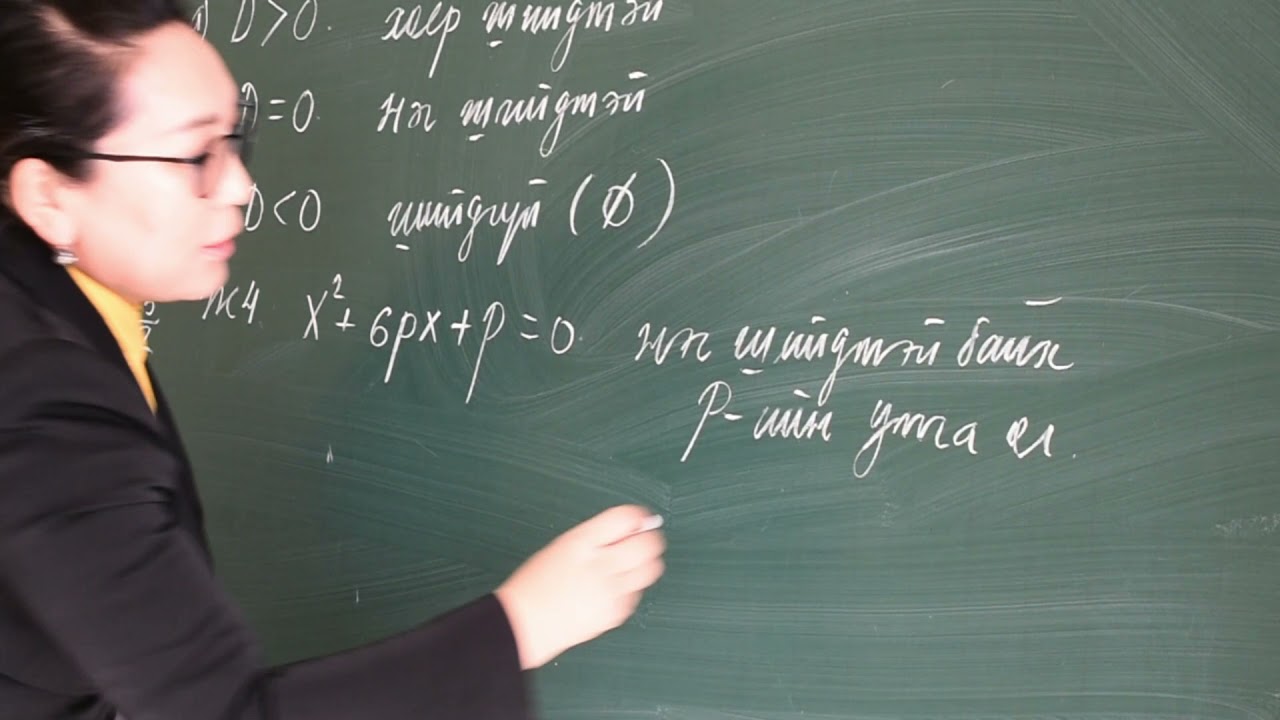 D>0. хоёр шийдтэй
D=0. нэг шийдтэй
D<0 шийдгүй (∅)
Ж4 x²+6px+p=0. нэг шийдтэй байх
P-ийн утга ол.